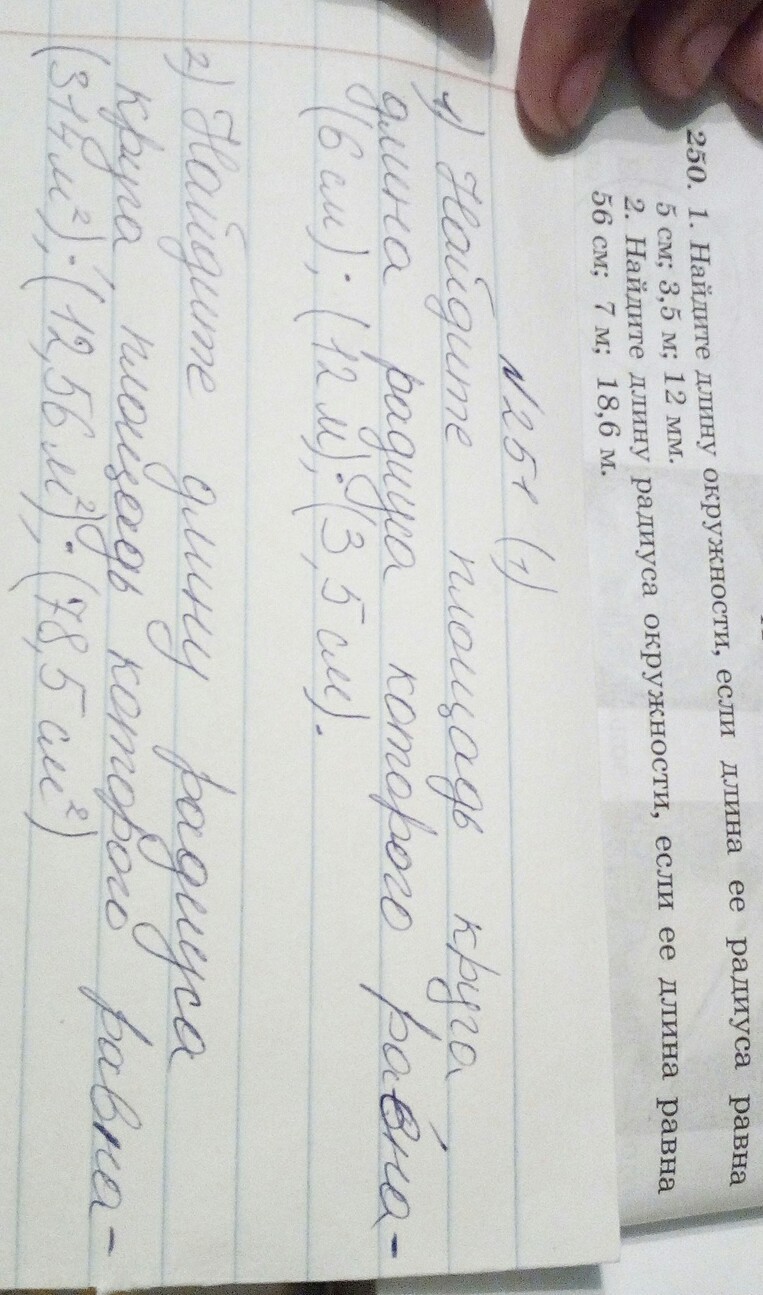 250. 1. Найдите длину окружности, если длина ее радиуса равна
5 см; 3,5 м; 12 мм.
2. Найдите длину радиуса окружности, если ее длина равна
56 см; 7 м; 18,6 м.
№251 (1)
1) Найдите площадь круга
длина радиуса которого равна-
(6 см); (12 м); (3,5 см).
2) Найдите длину радиуса
круга, площадь которого равна-
(314 м²); (12,56 м²); (78,5 см²)